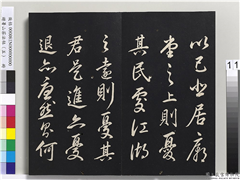 以己悲居廟
堂之上則憂
其民處江湖
之遠則憂其
君是進亦憂
退亦憂然則何
11